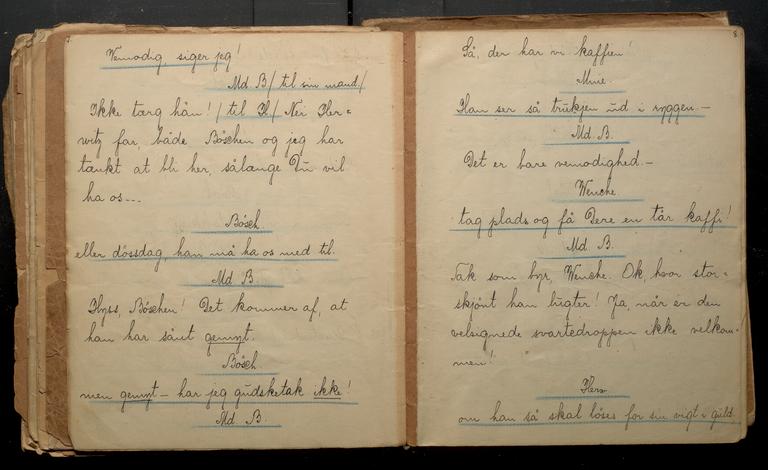 7.
Vemodig siger jeg!
Md B/ til sin mand/
Ikke tærg hån! /til H/ Nei Her=
witz far, både Böschen og jeg har
tænkt at bli her, sålænge Du vil
ha os...
Bösch
eller dössdag, han må ha os med til.
Md B.
Hyss, Böschen! Det kommer af, at
han har sånt gemyt.
Bösch
men gemyt – har jeg gudsketak ikke!
Md. B.
8
Så, der har vi kaffien!
Mine.
Han ser så trukjen ud i ryggen. –
Md. B.
Det er bare vemodighed. –
Wenche
tag plads og få Dere en tår kaffi!
Md. B.
Tak som byr, Wenche. Ok, hvor stor=
skjönt han lugter! Ja, når er den
velsignede svartedroppen ikke velkom-
men!
Herw
om han så skal löses for sin vigt i guld